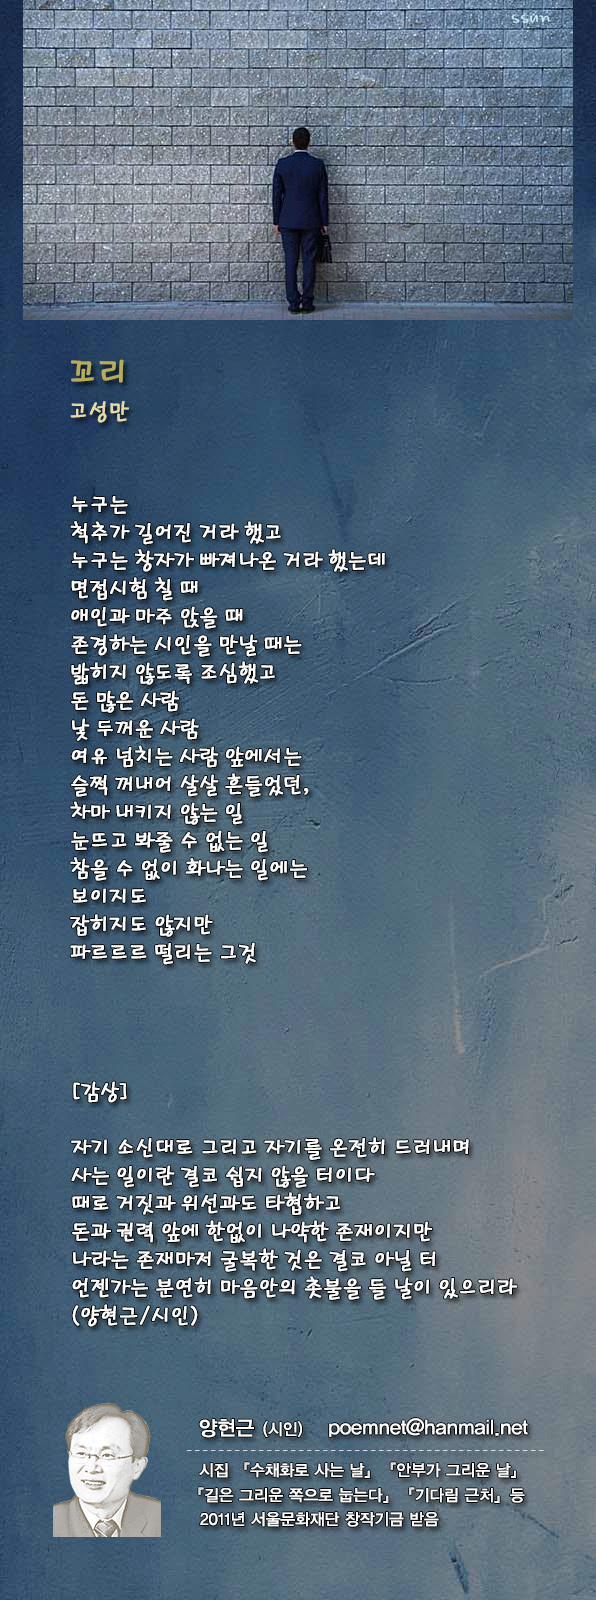 ssun
꼬리
고성만
누구는
척추가 길어진 거라 했고
누구는 창자가 빠져나온 거라 했는데
면접시험 칠 때
애인과 마주 앉을 때
존경하는 시인을 만날 때는
밟히지 않도록 조심했고
돈 많은 사람
낯 두꺼운 사람
여유 넘치는 사람 앞에서는
슬쩍 꺼내어 살살 흔들었던,
차마 내키지 않는 일
눈뜨고 봐줄 수 없는 일
참을 수 없이 화나는 일에는
보이지도
잡히지도 않지만
파르르르 떨리는 그것
[감상]
자기 소신대로 그리고 자기를 온전히 드러내며
사는 일이란 결코 쉽지 않을 터이다
때로 거짓과 위선과도 타협하고
돈과 권력 앞에 한없이 나약한 존재이지만
나라는 존재마저 굴복한 것은 결코 아닐 터
언젠가는 분연히 마음안의 촛불을 들 날이 있으리라
(양현근/시인)
양현근 (시인) poemnet@hanmail.net
시집 「수채화로 사는 날」 「안부가 그리운 날」
「길은 그리운 쪽으로 눕는다」 「기다림 근처」 등
2011년 서울문화재단 창작기금 받음